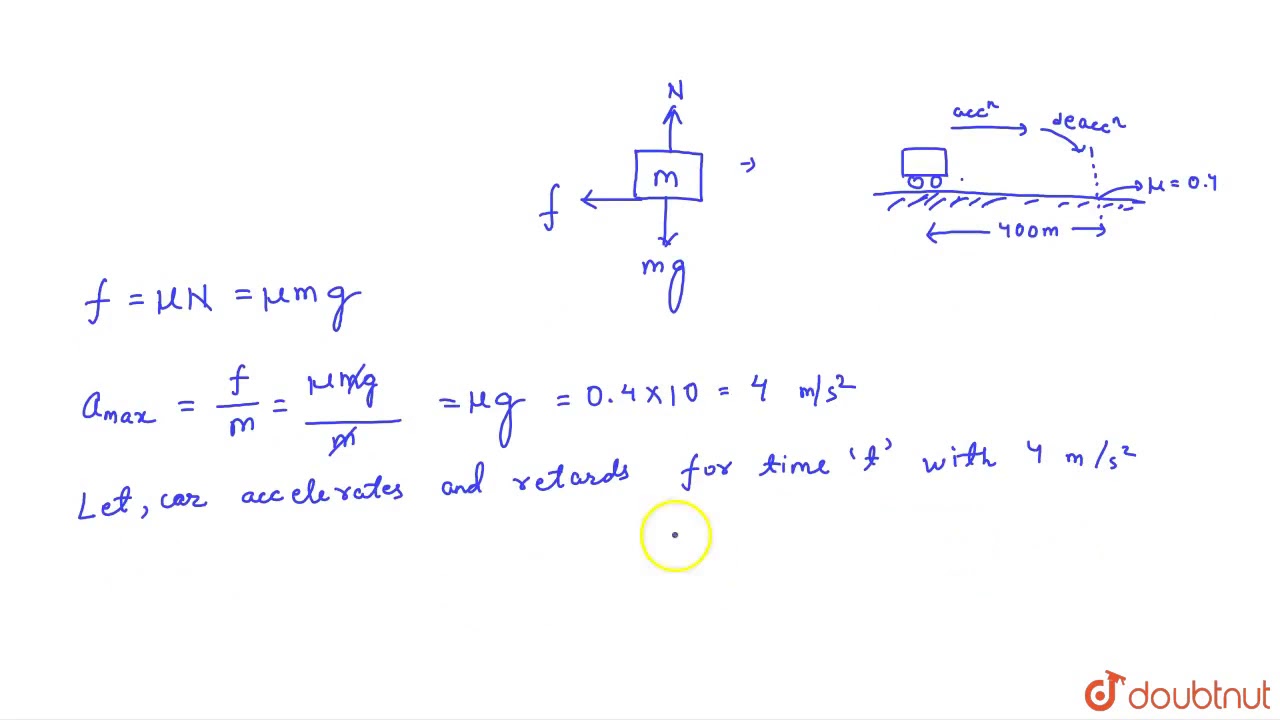 N
m
f
mg
accⁿ
deaccⁿ
μ = 0.4
400m
f = μN = μmg
a_max = f/m = μmg/m = μg = 0.4×10 = 4 m/s²
Let, car accelerates and retards for time 't' with 4 m/s²
doubtnut